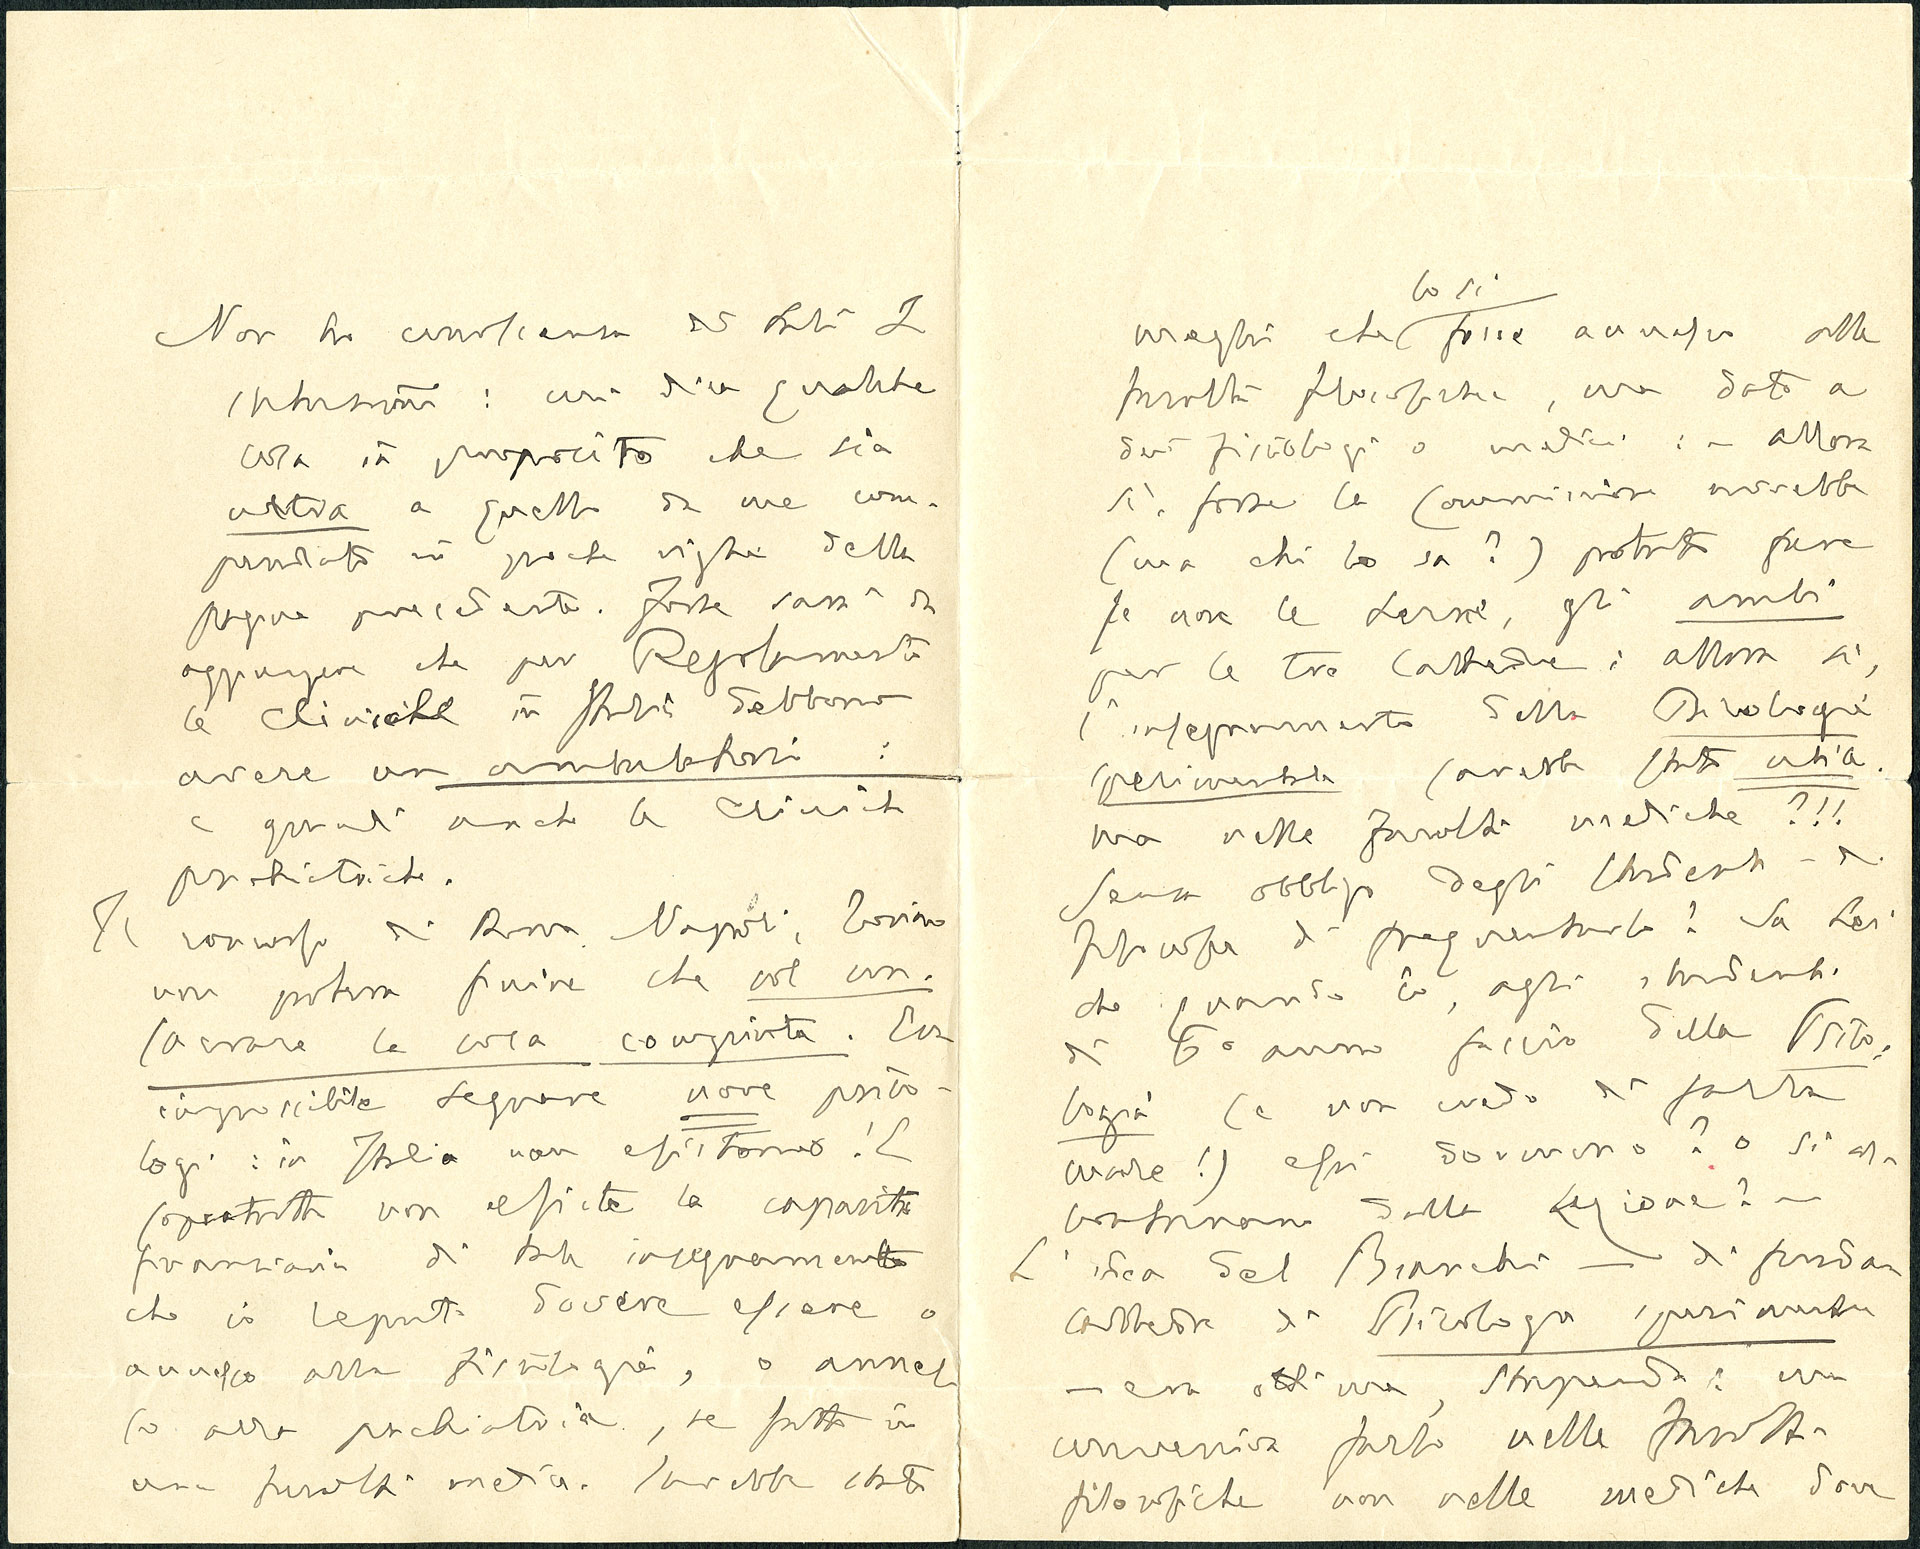 Non ho conoscenza di tali I
istituzioni : mi dica qualche
cosa in proposito che sia
a quella da me com-
pendiata in poche righe della
pagina precedente. Forse sarà da
aggiungere che per Regolamento
le Cliniche in Italia debbono
avere un ambulatorio :
e quindi anche le Cliniche
psichiatriche.
Il concorso di Roma, Napoli, Torino
non poteva finire che col con-
sacrare la cosa compiuta. Era
impossibile segnare nove psico-
logi : in Italia non esistono! E
soprattutto non esiste la capacità
finanziaria di tale insegnamento
che io reputo dovere essere o
annesso alla fisiologia, o annes-
so alla psichiatria, se fatto in
una facoltà medica. Sarebbe stato
così
meglio che fosse annesso alla
facoltà filosofica, ma dato a
dei fisiologi o medici : – allora
sì, forse la Commissione avrebbe
(ma chi lo sa ?) potuto fare
se non le terne, gli ambi
per le tre Cattedre : allora sì,
l'insegnamento della Psicologia
sperimentale sarebbe stato utile.
ma nelle facoltà mediche ?!!
Senza obbligo degli studenti – di
filosofia di frequentarlo? Sa Lei
che quando io, agli studenti
di 6° anno faccio della Psico-
logia (e non credo di farla
male !) essi dormono ? o si al-
lontanano dalla lezione ? –
L'idea del Bianchi – di fondar
cattedre di Psicologia sperimentale
– era ottima, stupenda : ma
conveniva farlo nelle facoltà
filosofiche non nelle mediche dove